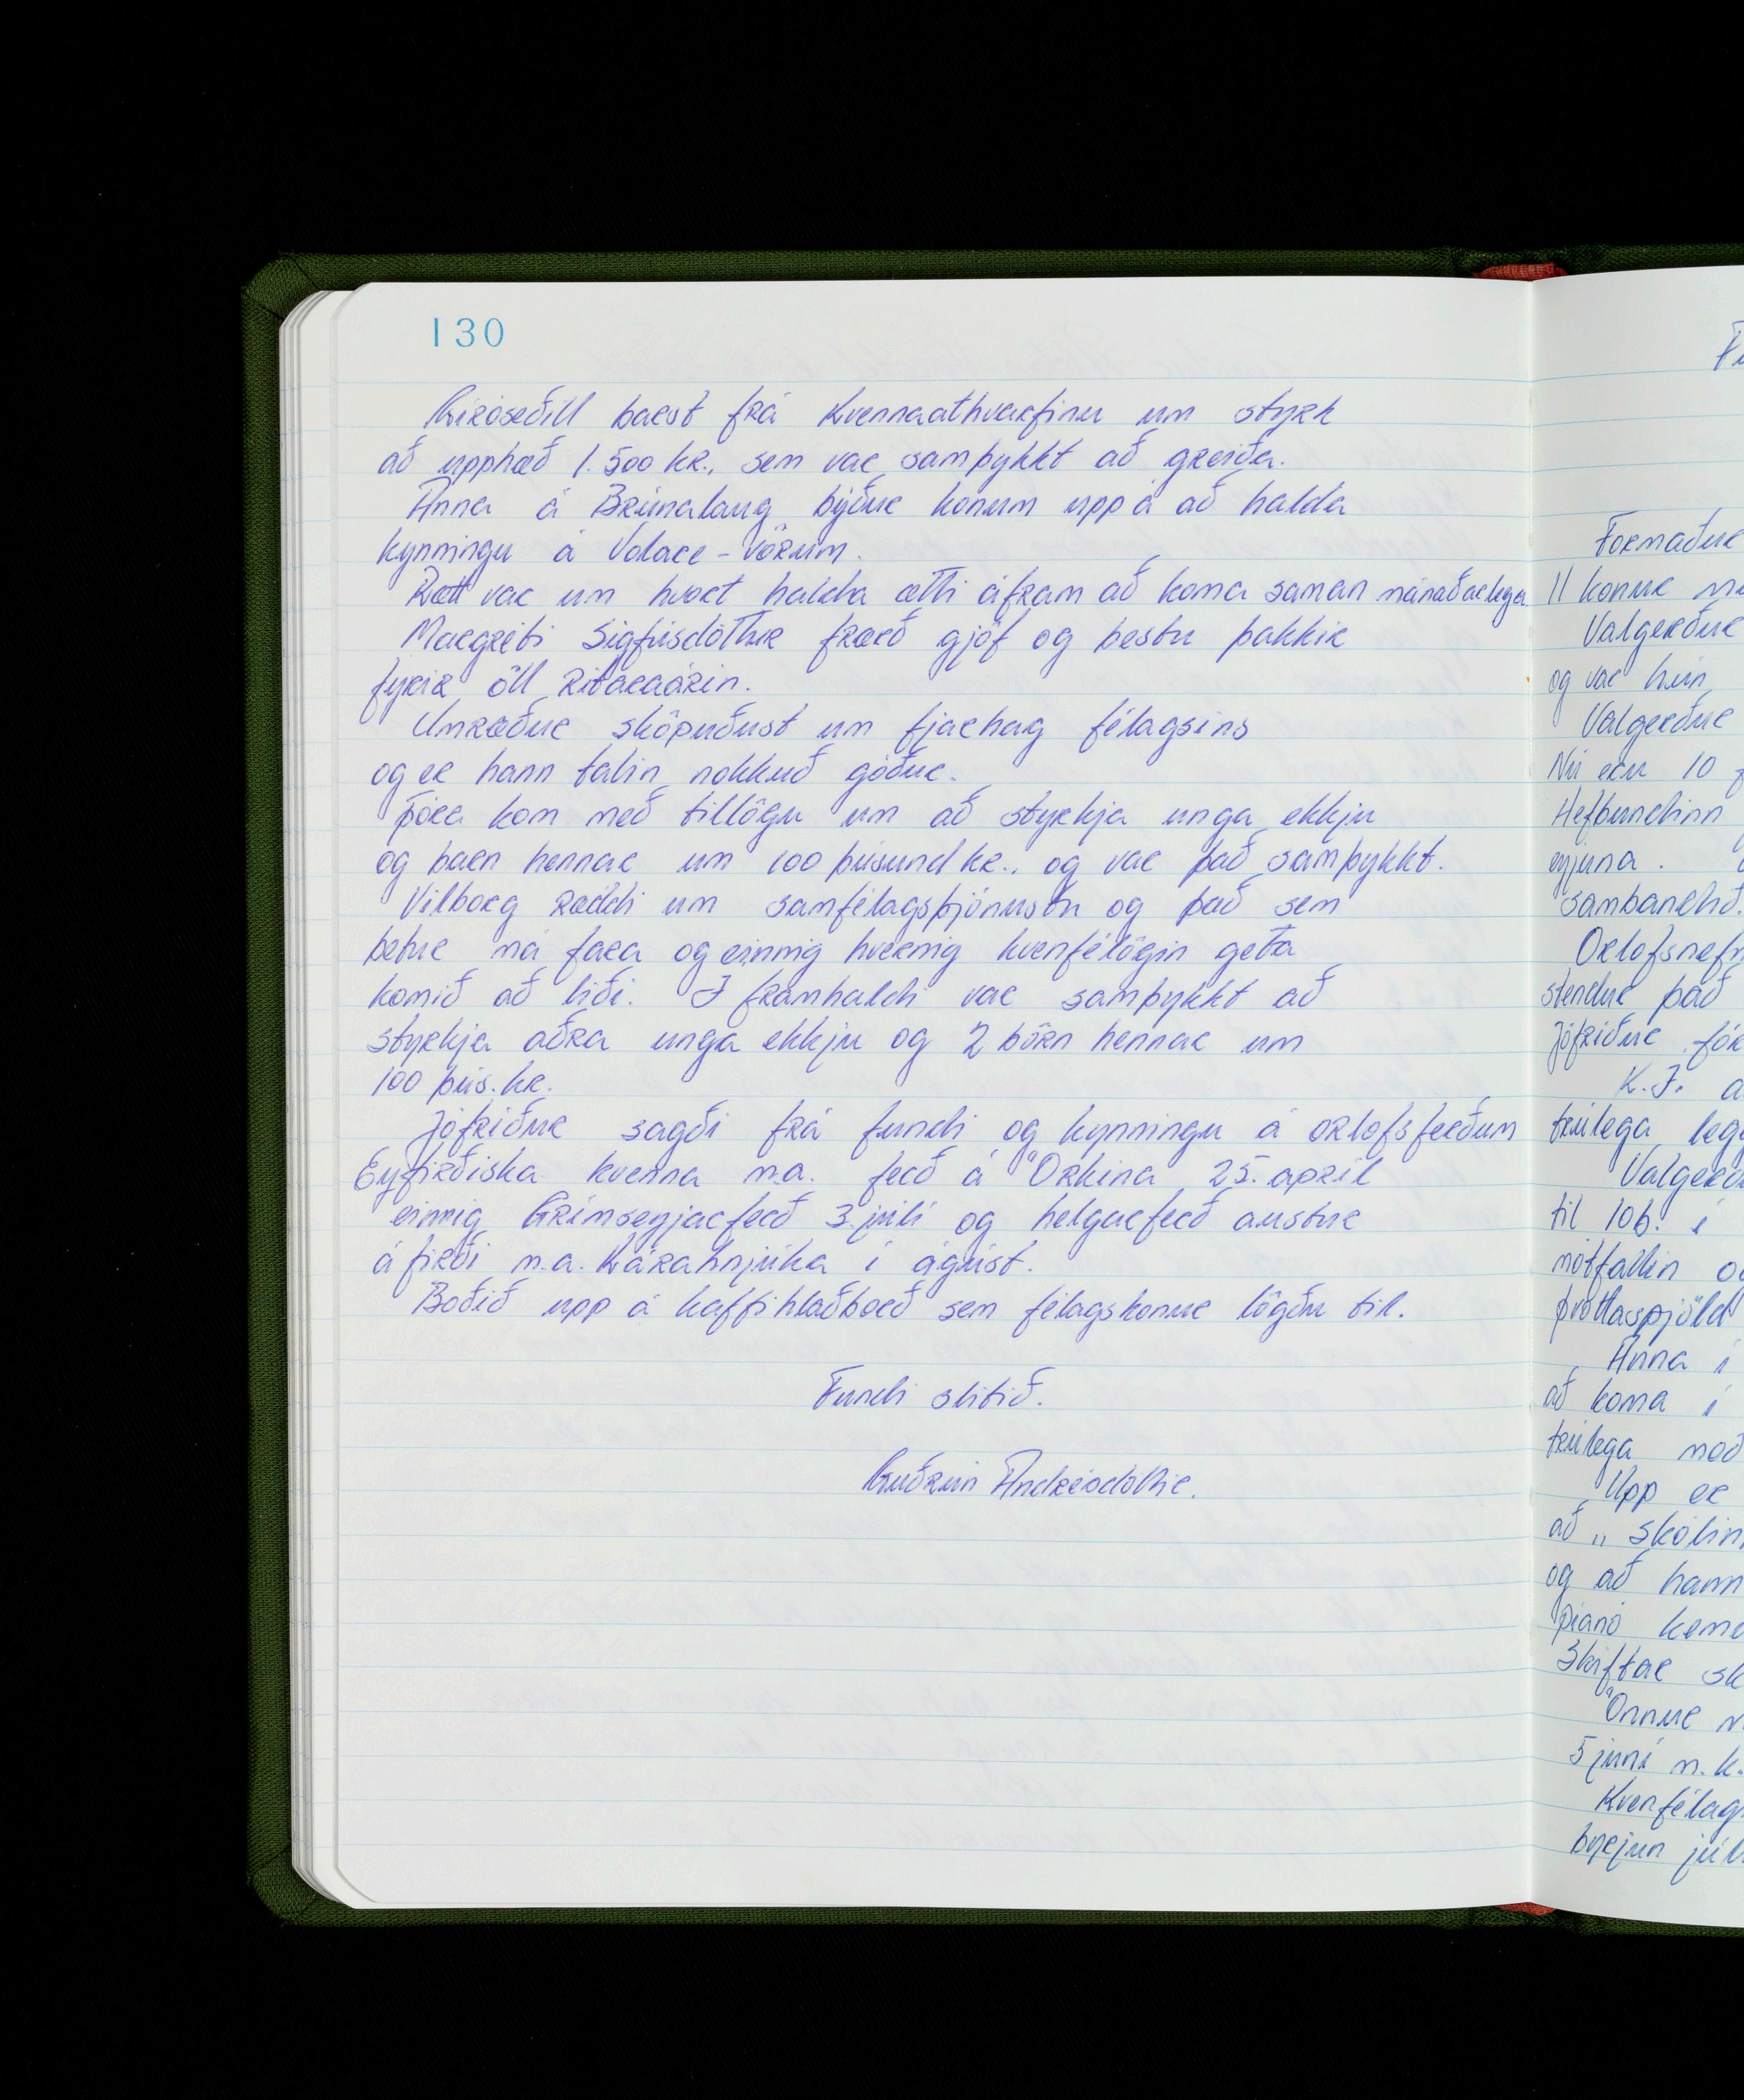 130
Gíróseðill barst frá Kvennaathvarfinu um styrk
að upphæð 1.500 kr., sem var samþykkt að greiða.
Anna á Brúnalaug býður konum upp á að halda
kynningu á Volare - vörum.
Rætt var um hvort halda ætti áfram að koma saman mánaðarlega.
Margréti Sigfúsdóttur færð gjöf og bestu þakkir
fyrir öll ritaraárin.
Umræður sköpuðust um fjárhag félagsins
og er hann talin nokkuð góður.
Þóra kom með tillögu um að styrkja unga ekkju
og barn hennar um 100 þúsund kr., og var það samþykkt.
Vilborg ræddi um samfélagsþjónustu og það sem
betur má fara og einnig hvernig kvenfélögin geta
komið að liði. Í framhaldi var samþykkt að
styrkja aðra unga ekkju og 2 börn hennar um
100 þús. kr.
Jófríður sagði frá fundi og kynningu á orlofsferðum
Eyfirðiska kvenna m.a. ferð á Örkina 25. apríl
einnig Grímseyjarferð 3. júlí og helgarferð austur
á firði m.a. Kárahnjúka í ágúst.
Boðið upp á kaffihlaðborð sem félagskonur lögðu til.
Fundi slitið.
Guðrún Andrésdóttir.
Formaður
11 konur
Valgerður
og var hún
Valgerður
Nú eru 10
Hefbundinn
eyjuna.
sambandið.
Orlofsnefn
stendur það
Jófríður fór
K.J. a
trúlega leg
Valgerð
til 106. í
mótfallin
þvottaspjöld
Anna í
að koma í
trúlega með
Upp er
að „ skólin
og að hann
píanó kem
Skiftar sk
Önnur
5 júní n.k.
Kvenfélag
byrjun júl